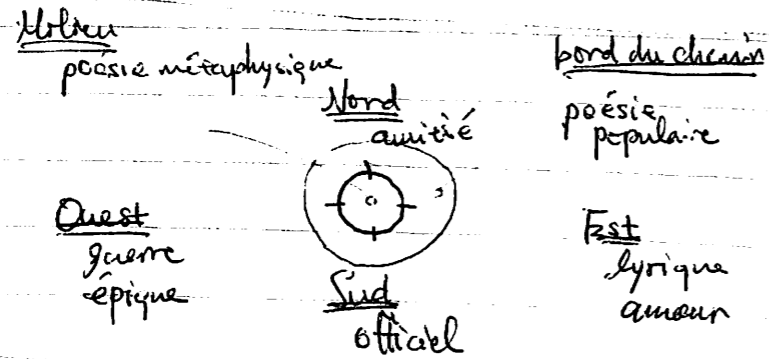 Milieu
poésie métaphysique
bord du chemin
poésie
populaire
Nord
amitié
Ouest
guerre
épique
Est
lyrique
amour
Sud
officiel